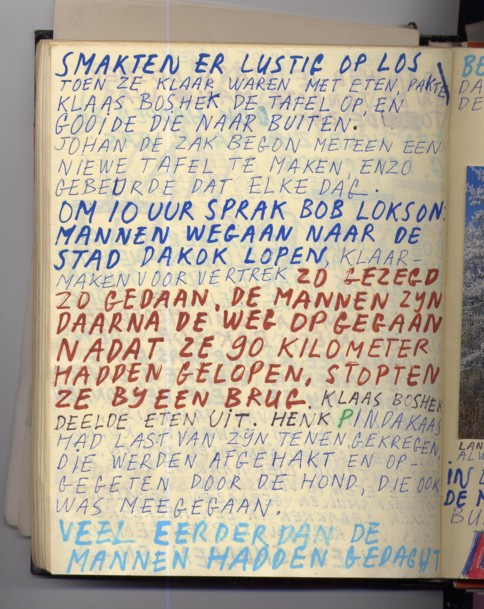 SMAKTEN ER LUSTIG OP LOS
TOEN ZE KLAAR WAREN MET ETEN, PAKTE
KLAAS BOSHEK DE TAFEL OP, EN
GOOIDE DIE NAAR BUITEN.
JOHAN DE ZAK BEGON METEEN EEN
NIEWE TAFEL TE MAKEN, ENZO
GEBEURDE DAT ELKE DAG.
OM 10 UUR SPRAK BOB LOKSON:
MANNEN WEGAAN NAAR DE
STAD DAKOK LOPEN, KLAAR-
MAKEN VOOR VERTREK ZO GEZEGD
ZO GEDAAN. DE MANNEN ZYN
DAARNA DE WEG OPGEGAAN
NADAT ZE 90 KILOMETER
HADDEN GELOPEN, STOPTEN
ZE BY EEN BRUG. KLAAS BOSHEK
DEELDE ETEN UIT. HENK PINDAKAAS
HAD LAST VAN ZYN TENEN GEKREGEN,
DIE WERDEN AFGEHAKT EN OP-
GEGETEN DOOR DE HOND, DIE OOK
WAS MEEGEGAAN.
VEEL EERDER DAN DE
MANNEN HADDEN GEDACHT
BE
DA
DE
LAN
ALW
IN
DE M
BU